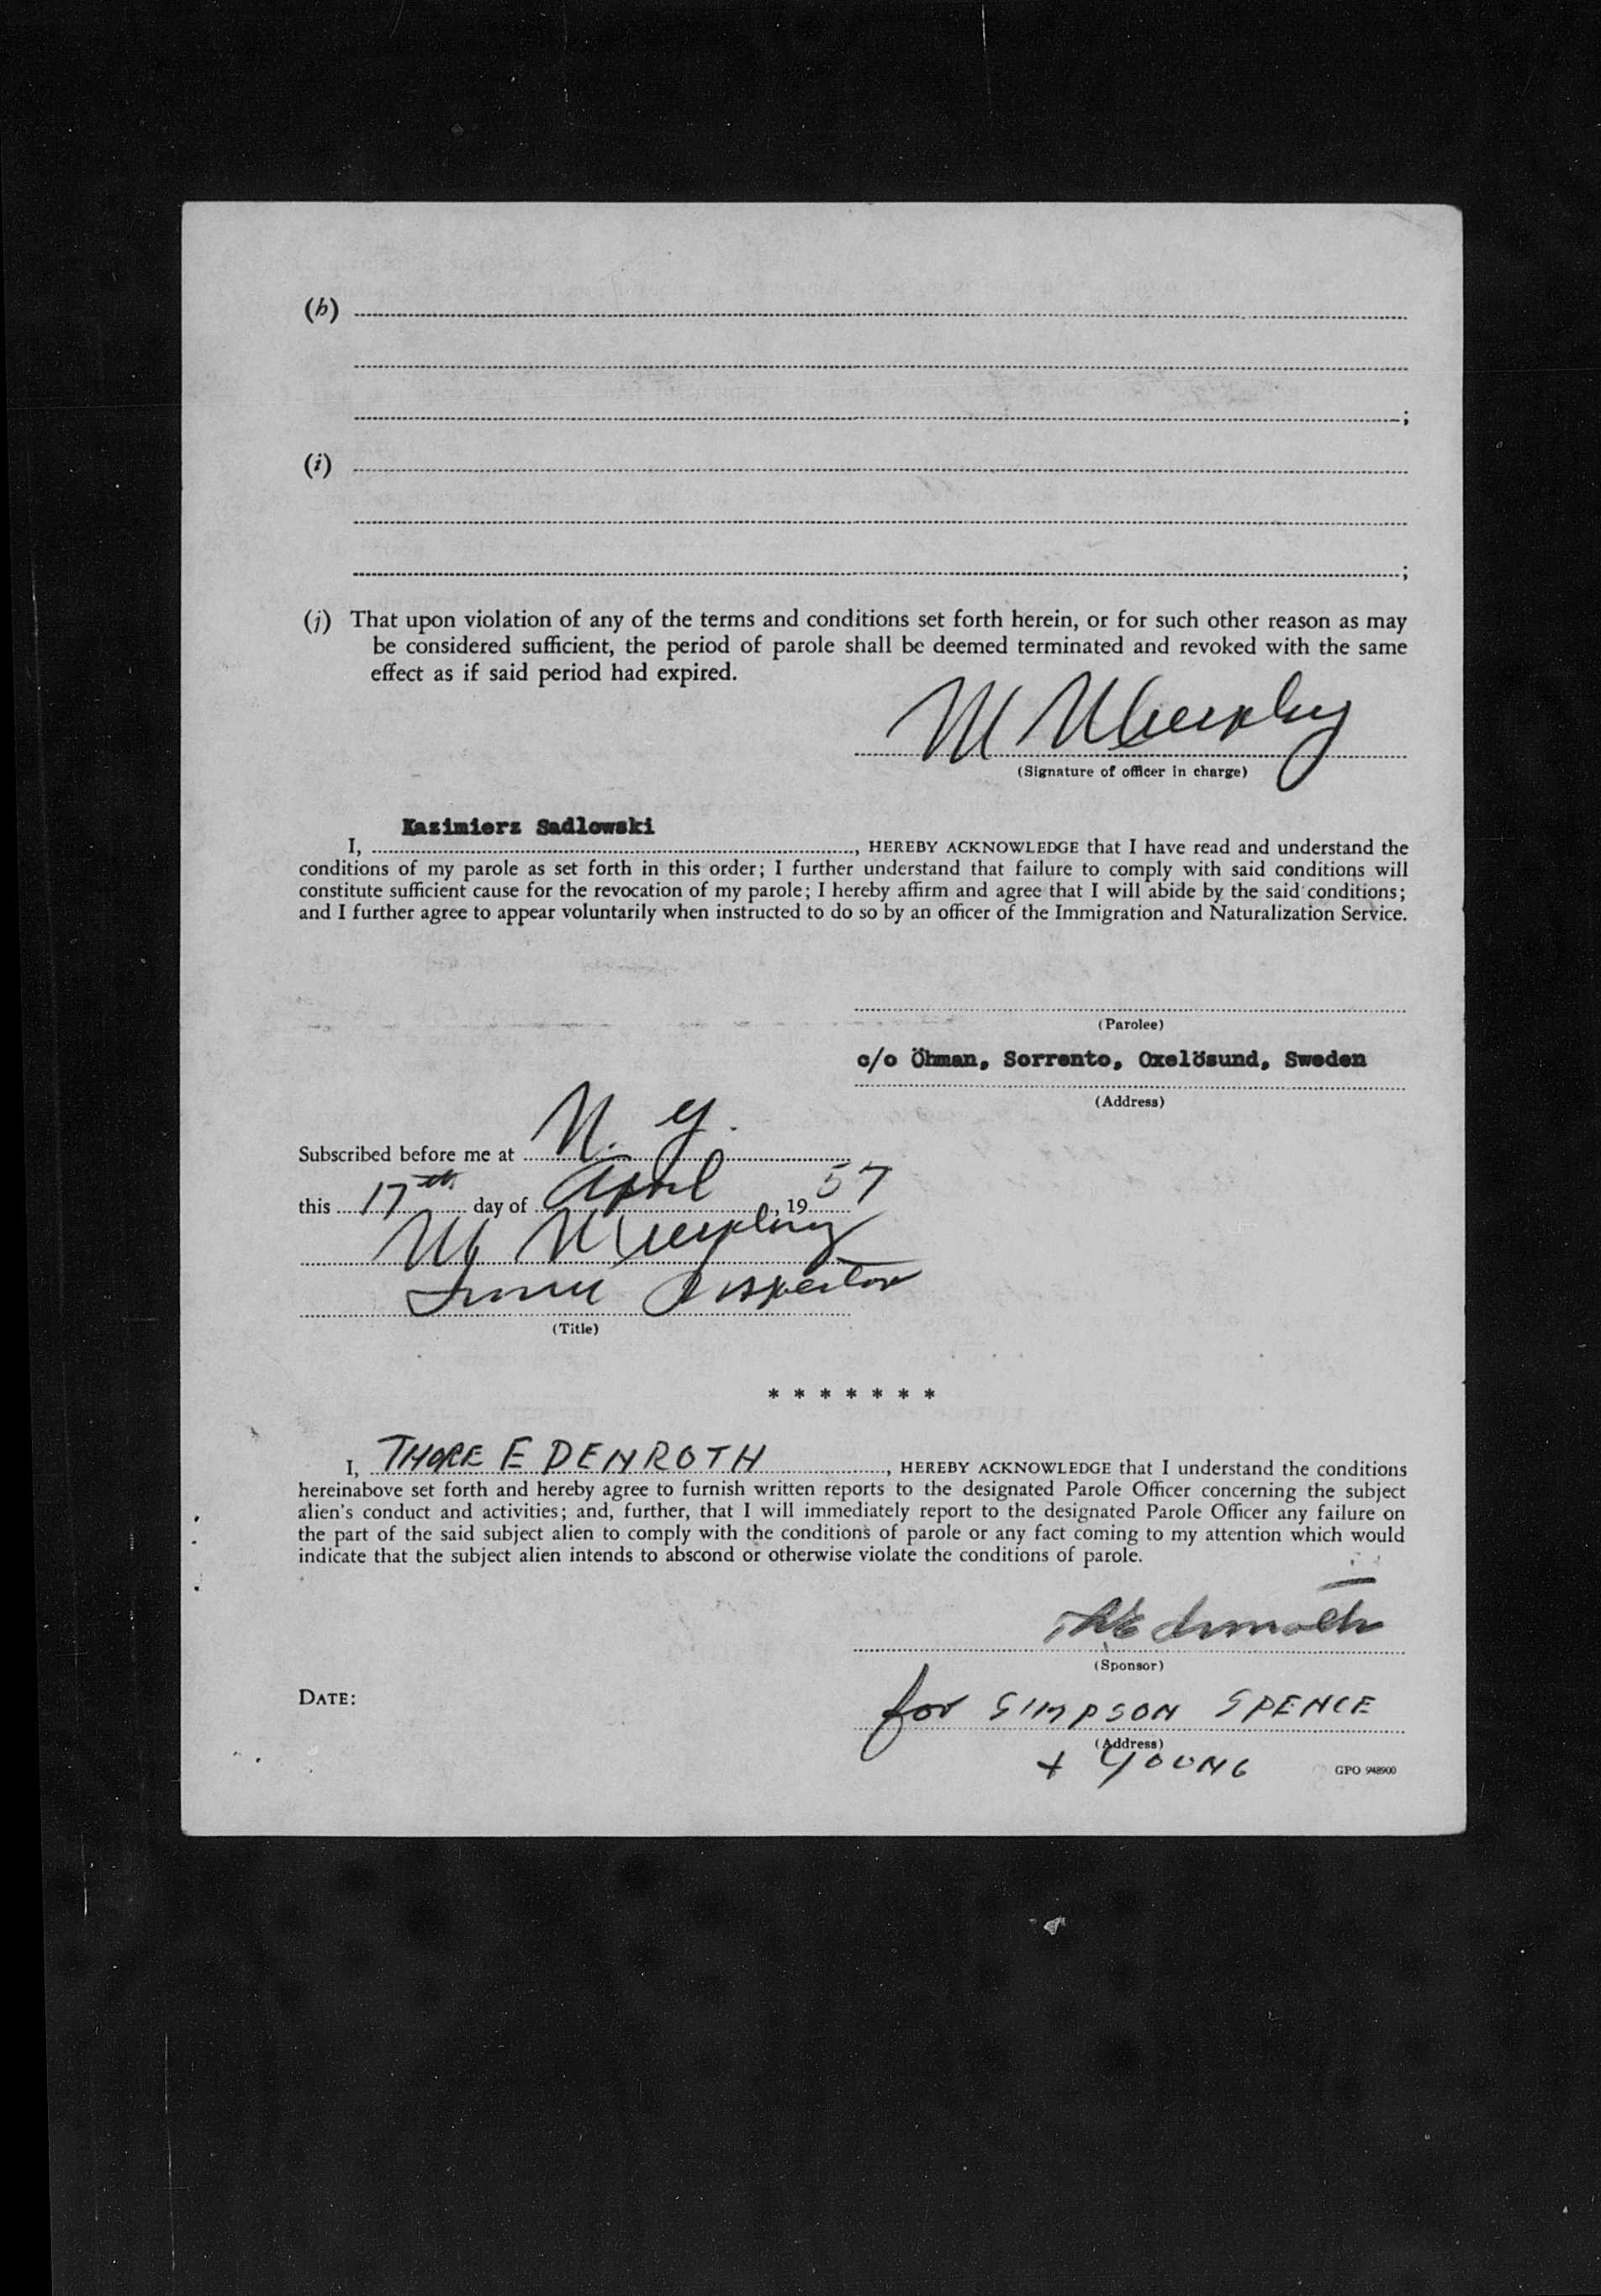 (h)
;
(i)
;
(j) That upon violation of any of the terms and conditions set forth herein, or for such other reason as may
be considered sufficient, the period of parole shall be deemed terminated and revoked with the same
effect as if said period had expired.
M Murphy
(Signature of officer in charge)
Kazimierz Sadlowski
I, , HEREBY ACKNOWLEDGE that I have read and understand the
conditions of my parole as set forth in this order; I further understand that failure to comply with said conditions will
constitute sufficient cause for the revocation of my parole; I hereby affirm and agree that I will abide by the said conditions;
and I further agree to appear voluntarily when instructed to do so by an officer of the Immigration and Naturalization Service.
(Parolee)
c/o Öhman, Sorrento, Oxelösund, Sweden
(Address)
Subscribed before me at N. Y.
this 17th day of April, 1957
M Murphy
Immi Inspector
(Title)
* * * * * * *
I, THORE E DENROTH, HEREBY ACKNOWLEDGE that I understand the conditions
hereinabove set forth and hereby agree to furnish written reports to the designated Parole Officer concerning the subject
alien's conduct and activities; and, further, that I will immediately report to the designated Parole Officer any failure on
the part of the said subject alien to comply with the conditions of parole or any fact coming to my attention which would
indicate that the subject alien intends to abscond or otherwise violate the conditions of parole.
(Sponsor)
DATE:
for SIMPSON SPENCE
(Address)
+ YOUNG
GPO 948900